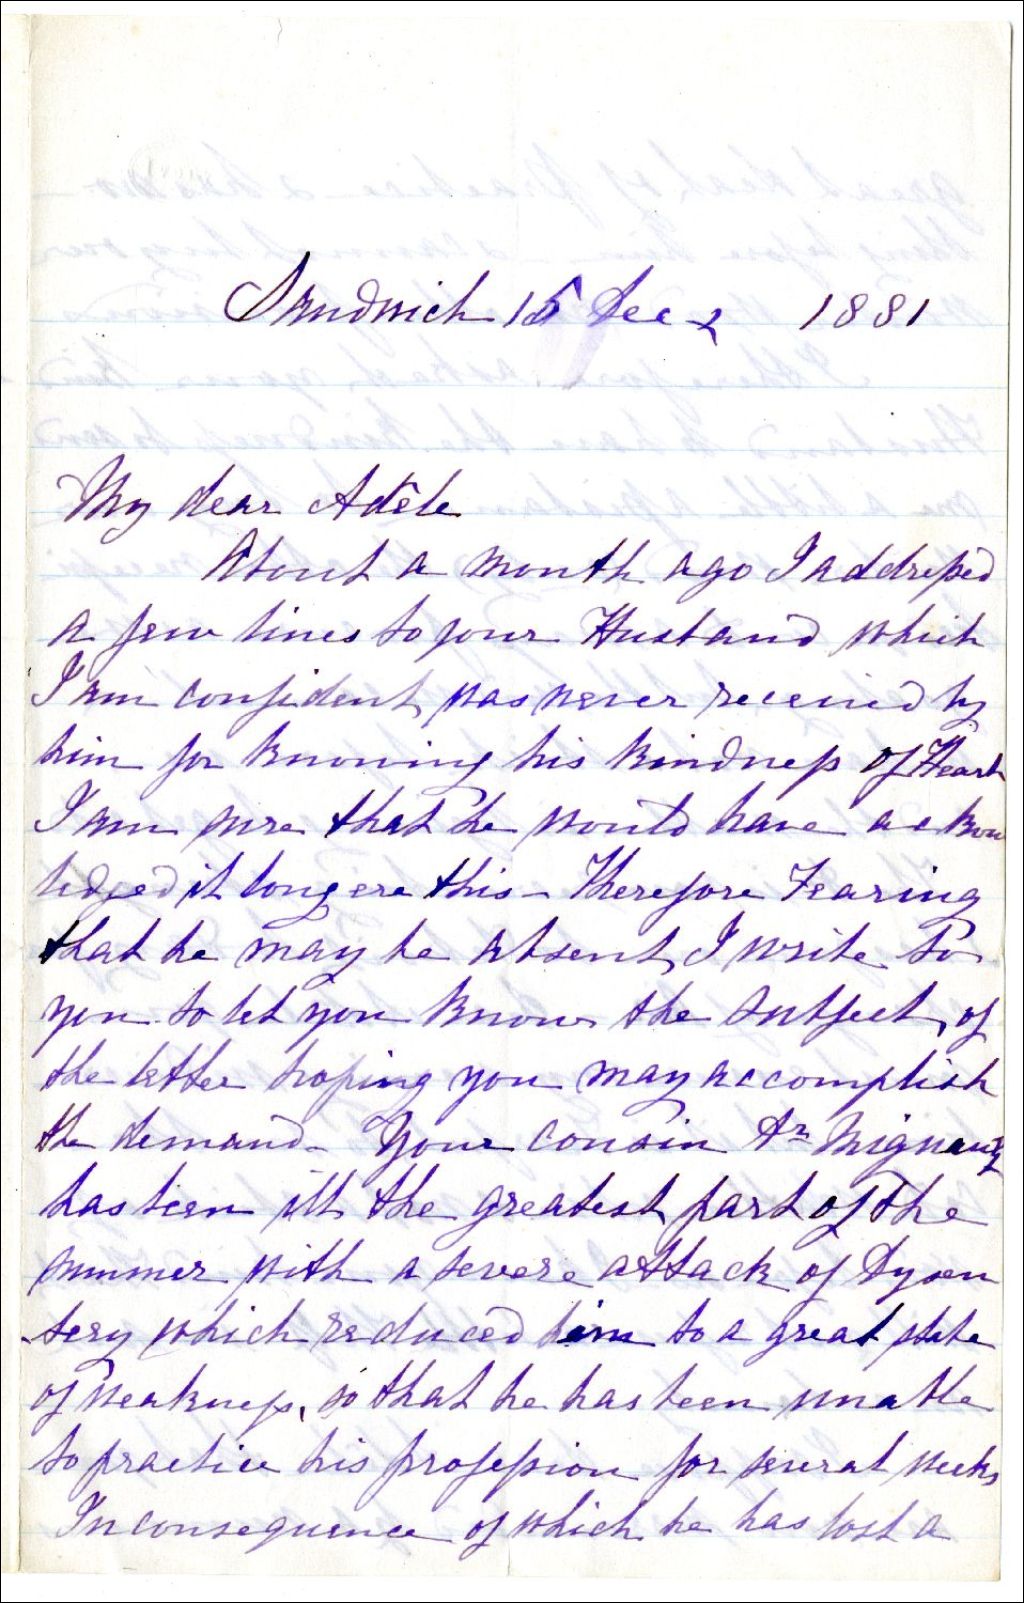 Sandwich 15 Dec 1881
My dear Adèle
About a month ago I addressed
a few lines to your Husband which
I am confident, was never received by
him for knowing his kindness of Heart
I am sure that he would have acknow
ledged it long ere this – Therefore Fearing
that he may be absent, I write to
you to let you know the subject, of
the letter hoping you may accomplish
the demand – Your cousin Dr Mignault
has been ill the greatest part of the
summer with a severe attack of Dysen
tery which reduced him to a great state
of weakness, so that he has been unable
to practice his profession for several weeks
In consequence of which he has lost a